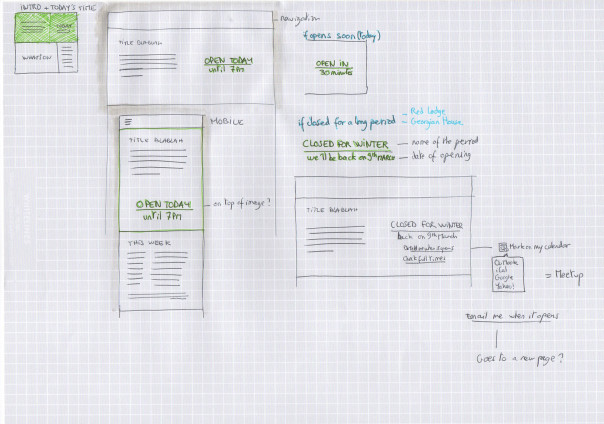 INTRO + TODAY'S TIME
TODAY
WHAT'S ON
navigation
TITLE BLABLAH
OPEN TODAY
until 7PM
if opens soon (today)
OPEN IN
30 minutes
MOBILE
TITLE BLABLAH
OPEN TODAY
until 7PM
on top of image?
THIS WEEK
if closed for a long period
Red Lodge
Georgian House
CLOSED FOR WINTER
name of the period
we'll be back on 9th MARCH
date of opening
TITLE BLABLAH
CLOSED FOR WINTER
back on 9th March
Check full times
Mark on my calendar
Outlook
iCal
Google
Yahoo!
= Meetup
Email me when it opens
Goes to a new page?